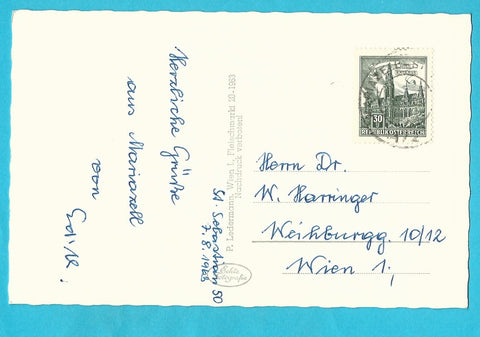 St. Sebastian 50
7.8.1963
Herzliche Grüße
aus Mariazell
von
P. Ledermann, Wien I., Fleischmarkt 20 - 1963
Nachdruck verboten!
Echte
30
REPUBLIK ÖSTERREICH
Herrn Dr.
W. Harringer
Weihburgg. 10/12
Wien 1.,